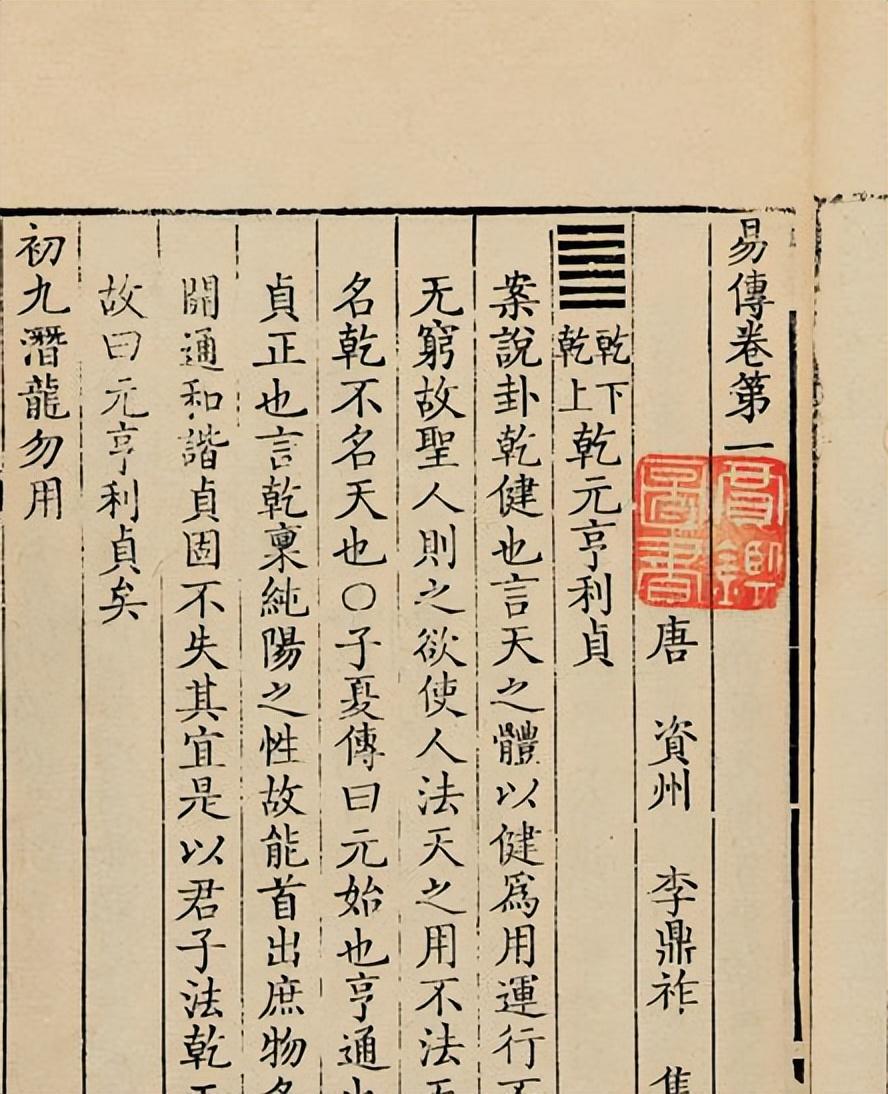 易傳卷第一
唐 資州 李鼎祚 集
乾下
乾上
乾元亨利貞
案說卦乾健也言天之體以健爲用運行不
无窮故聖人則之欲使人法天之用不法天
名乾不名天也〇子夏傳曰元始也亨通也
貞正也言乾稟純陽之性故能首出庶物各
開通和諧貞固不失其宜是以君子法乾
故曰元亨利貞矣
初九潛龍勿用